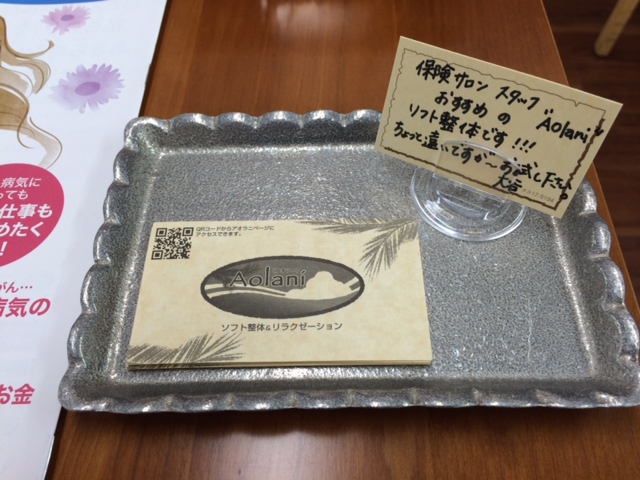 病気に
っても
仕事も
めたく
!
がん…
病気の
お金
保険サロン スタッフ
おすすめの "Aolani"
ソフト整体です!!!
ちょっと遠いですが〜お試し下さい
QRコードからアオラニページに
アクセスできます。
Aolani
ソフト整体&リラクゼーション